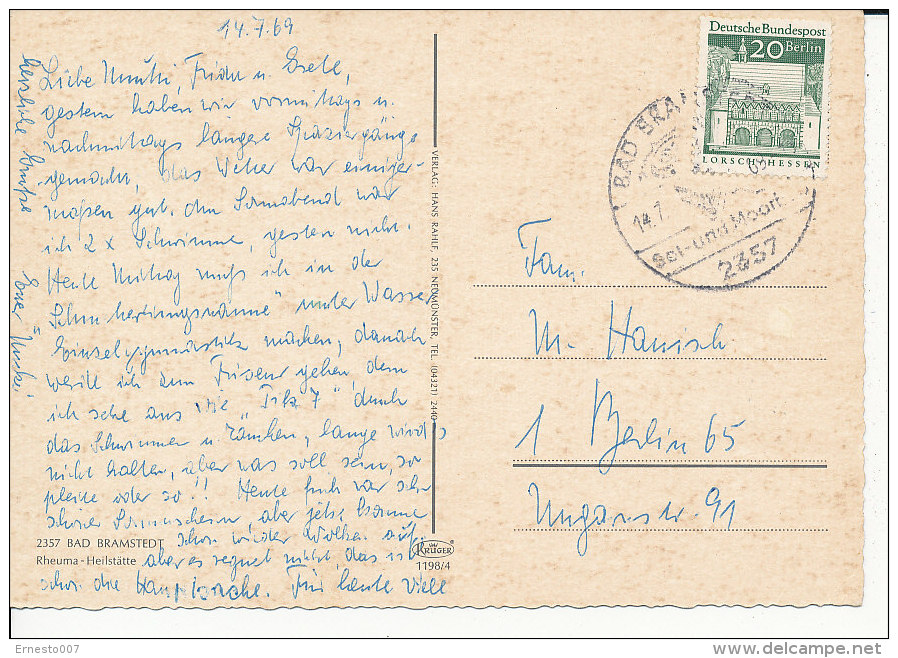 14.7.69
Liebe Mutti, u. Grete,
gestern haben wir vormittags u.
nachmittags längere Spaziergänge
gemacht, das Wetter war einiger-
maßen gut. Am Sonnabend war
ich 2 x Schwimmen, gestern nicht.
Heute Mittag muß ich in der
"Schmetterlingswanne" unter Wasser
Einzelgymnastik machen, danach
werde ich zum Friseur gehen, denn
ich sehe aus wie " 7", durch
das Schwimmen u. , lange wird's
nicht halten, aber was soll sein, so
pleite oder so!! Heute früh war sehr
schöner Sonnenschein, aber jetzt kommen
schon wieder Wolken auf,
aber es regnet nicht, das ist
schon die Hauptsache. Für heute viele
herzliche Grüße
Euer
2357 BAD BRAMSTEDT
Rheuma-Heilstätte
VERLAG: HANS RAHLF, 235 NEUMÜNSTER, TEL. (04321) 2440
KRÜGER
1198/4
Deutsche Bundespost
20 Berlin
LORSCH/HESSEN
BAD BRAMSTEDT
14.7.
69
Sol-und Moor
2357
Fam.
M. Hanisch
1 Berlin 65
Ungarnstr. 91
Ernesto007
www.delcampe.net